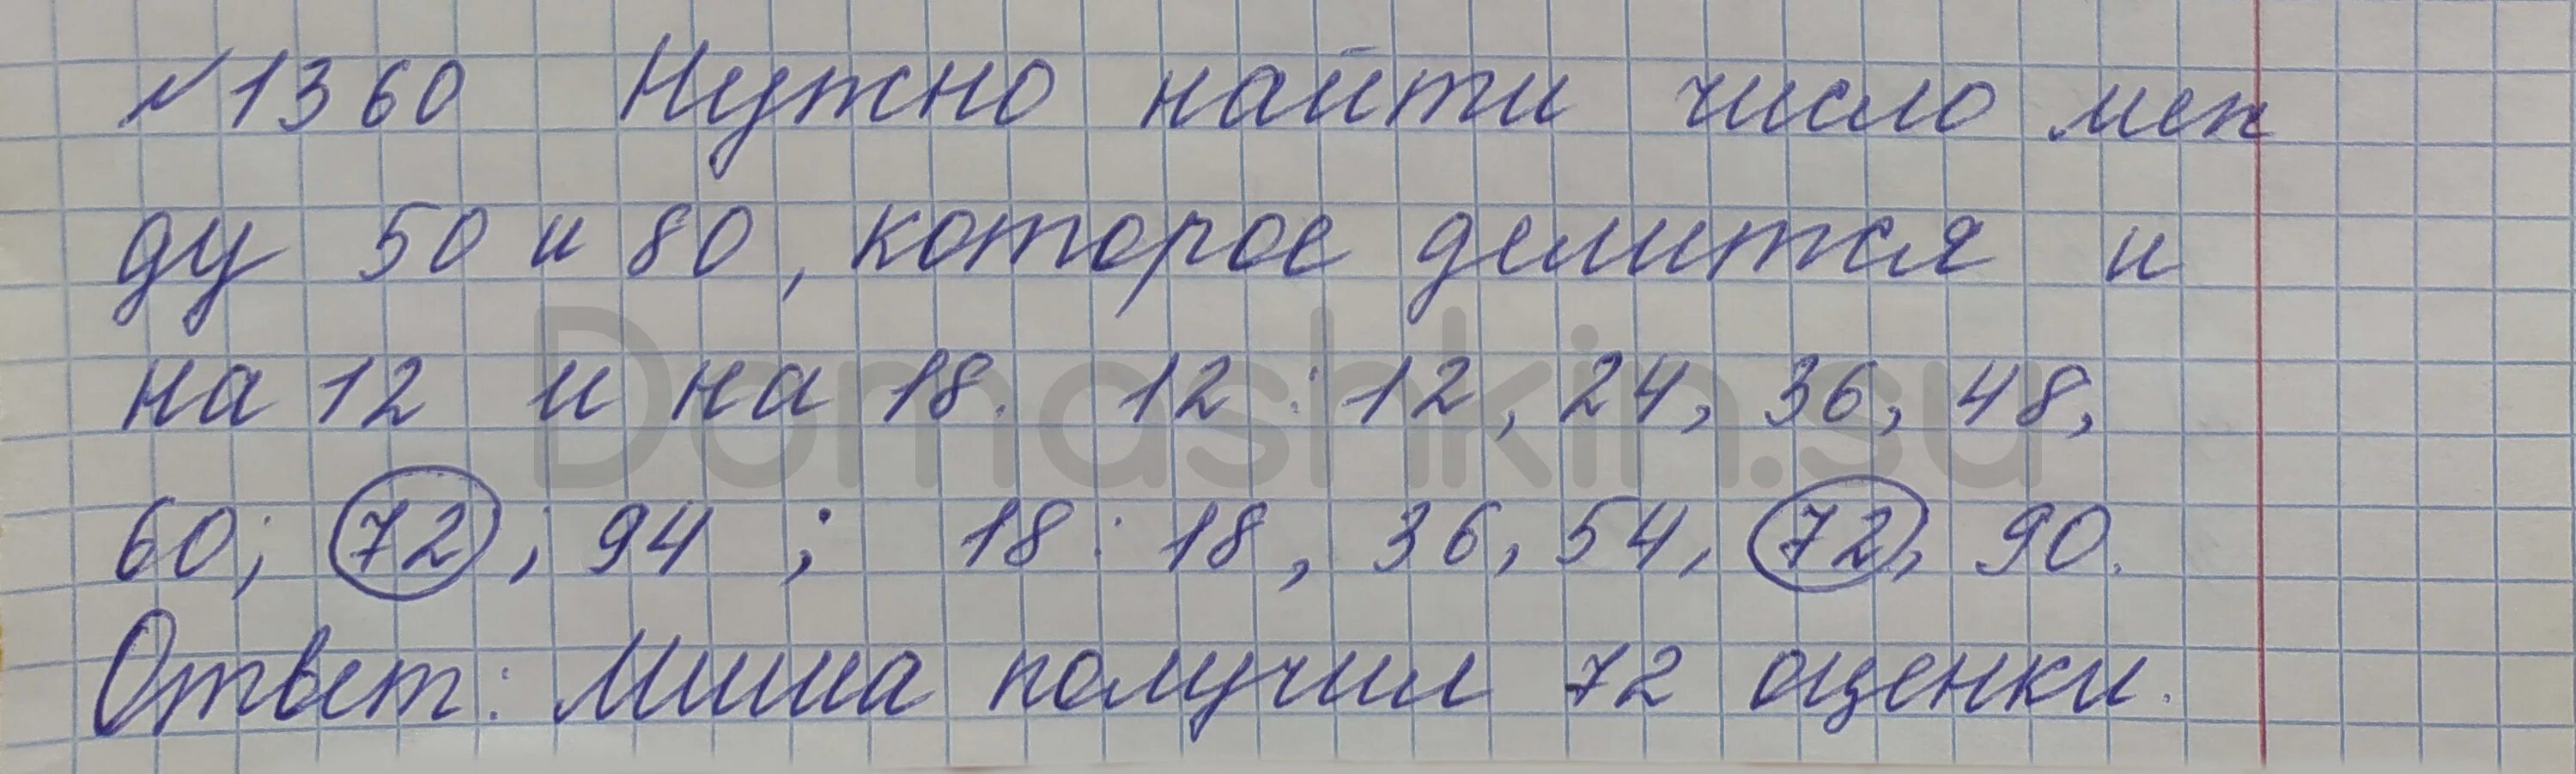 №1360 Нужно найти число меж
ду 50 и 80, которое делится и
на 12 и на 18. 12: 12, 24, 36, 48,
60; 72; 94; 18: 18, 36, 54, 72, 90.
Ответ: Миша получил 72 оценки.
Domashkin.su